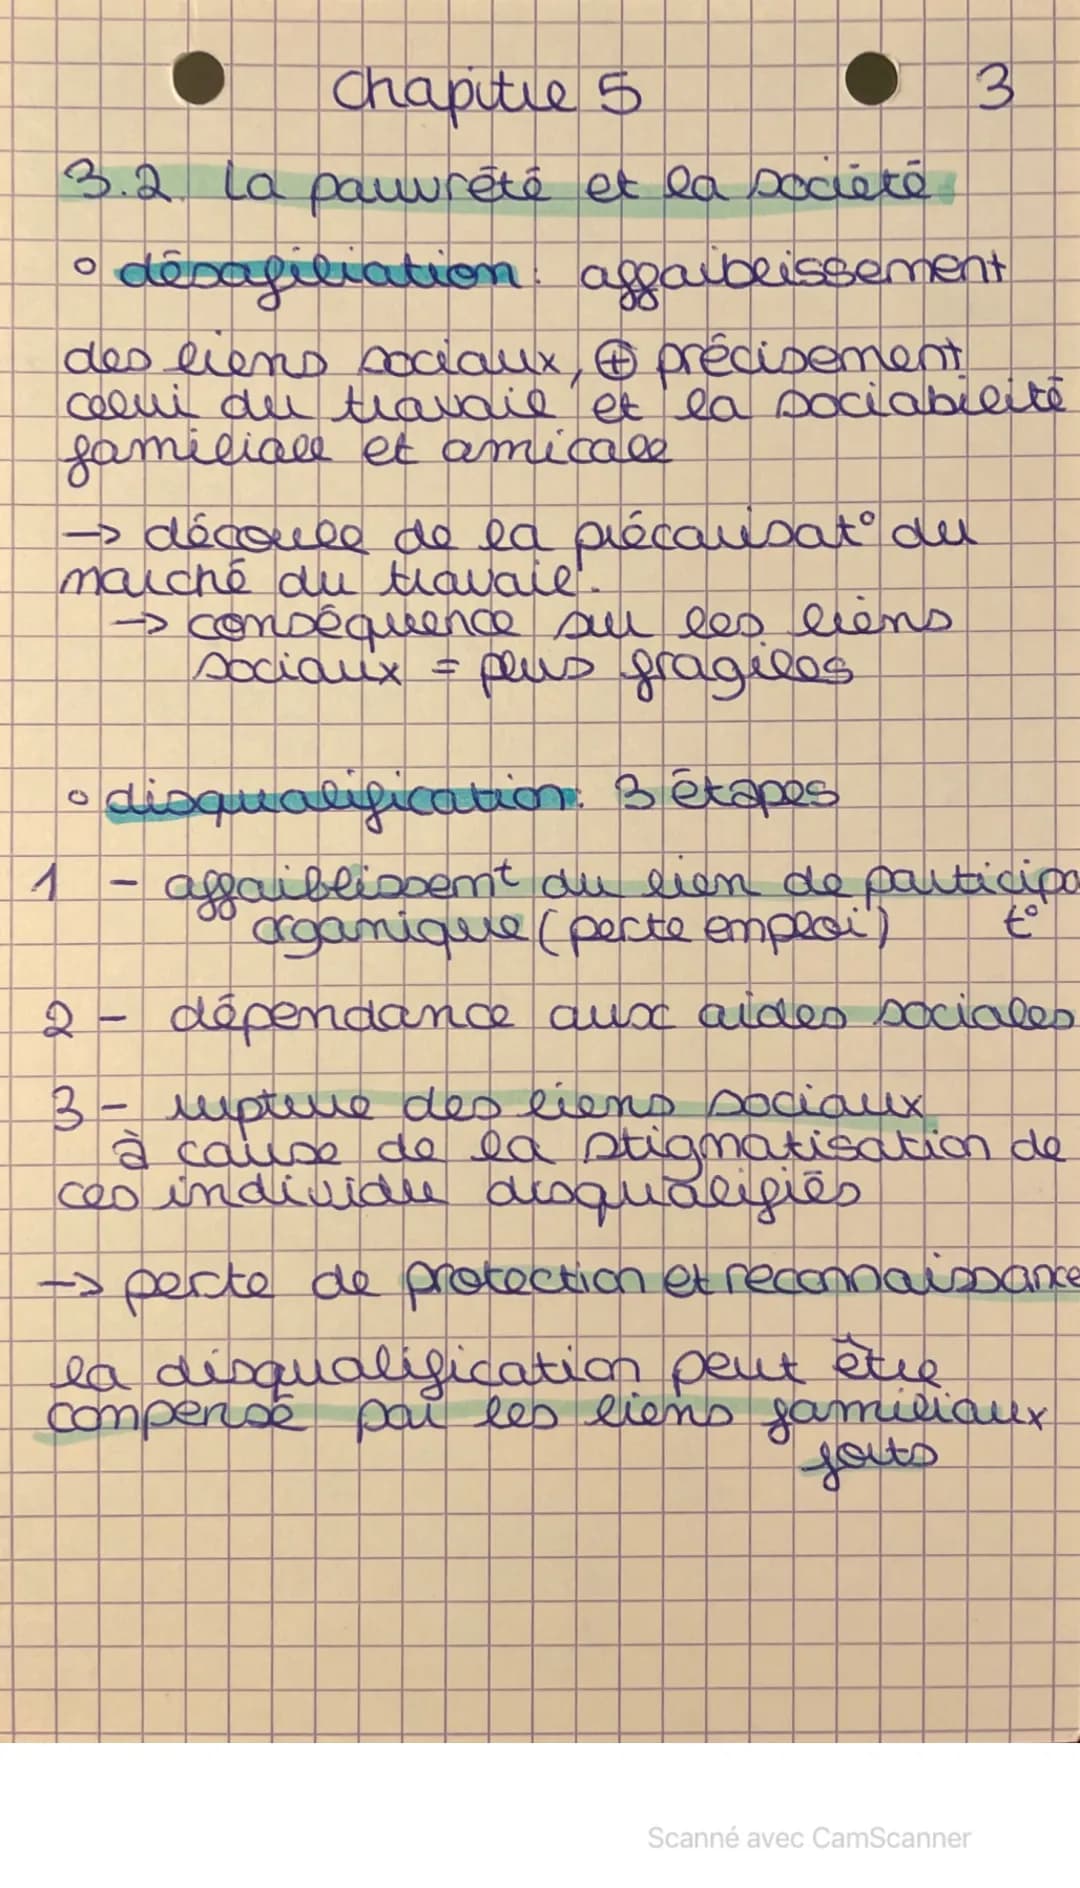 Chapitre 5
3
3.2. La pauvrété et la société
° désafiliation : affaiblissement
des liens sociaux, ⊕ précisement
celui du travail et la sociabilité
familiale et amicale
→ découle de la précarisat° du
marché du travail.
→ conséquence sur les liens
sociaux = plus fragiles
° disqualification : 3 étapes
1 - affaiblissemt du lien de participa
organique (perte emploi) t°
2 - dépendance aux aides sociales
3 - rupture des liens sociaux
à cause de la stigmatisation de
ces individu disqualifiés
→ perte de protection et reconnaissance
la disqualification peut être
compensé par les liens familiaux
forts
Scanné avec CamScanner